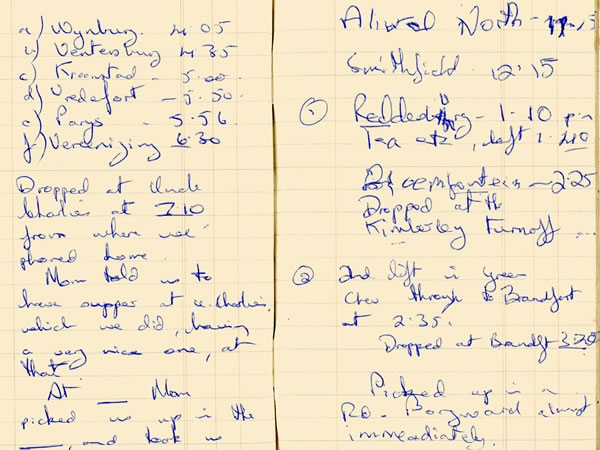 a) Wynburg. 4.05
b) Ventersburg 4.35
c) Kroonstad - 5.00.
d) Vredefort - 5.50.
e) Parys - 5.56.
f) Vereeniging 6.30
Dropped at Uncle
Charlies at 7.10
from where we
phoned home.
Mom told us to
have supper at u. Charlies,
which we did, having
a very nice one, at
that
At __ Mom
picked us up in the
___, and took us
Aliwal North -
Smithfield 12.15
① Reddersburg - 1.10 pm
Tea etc, left 1.40
Bloemfontein - 2.25
Dropped at the
Kimberley Turnoff ...
② 2nd lift in green
Chev through to Brandfort
at 2.35.
Dropped at Brandft 3.20
Picked up in a
Borgward almost
immediately.